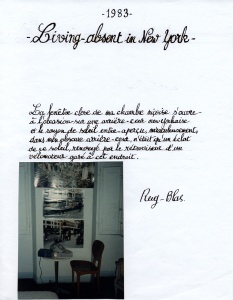 -1983-
-Living-absent in New York-
La fenêtre close de ma chambre niçoise s'ouvre-
à l'occasion-sur une arrière-cour new-yorkaise
et le rayon de soleil entre-aperçu, miraculeusement,
dans mon obscure arrière-cour, n'était qu'un éclat
de ce soleil, renvoyé par le rétroviseur d'un
vélomoteur garé à cet endroit.
Ruy-Blas.